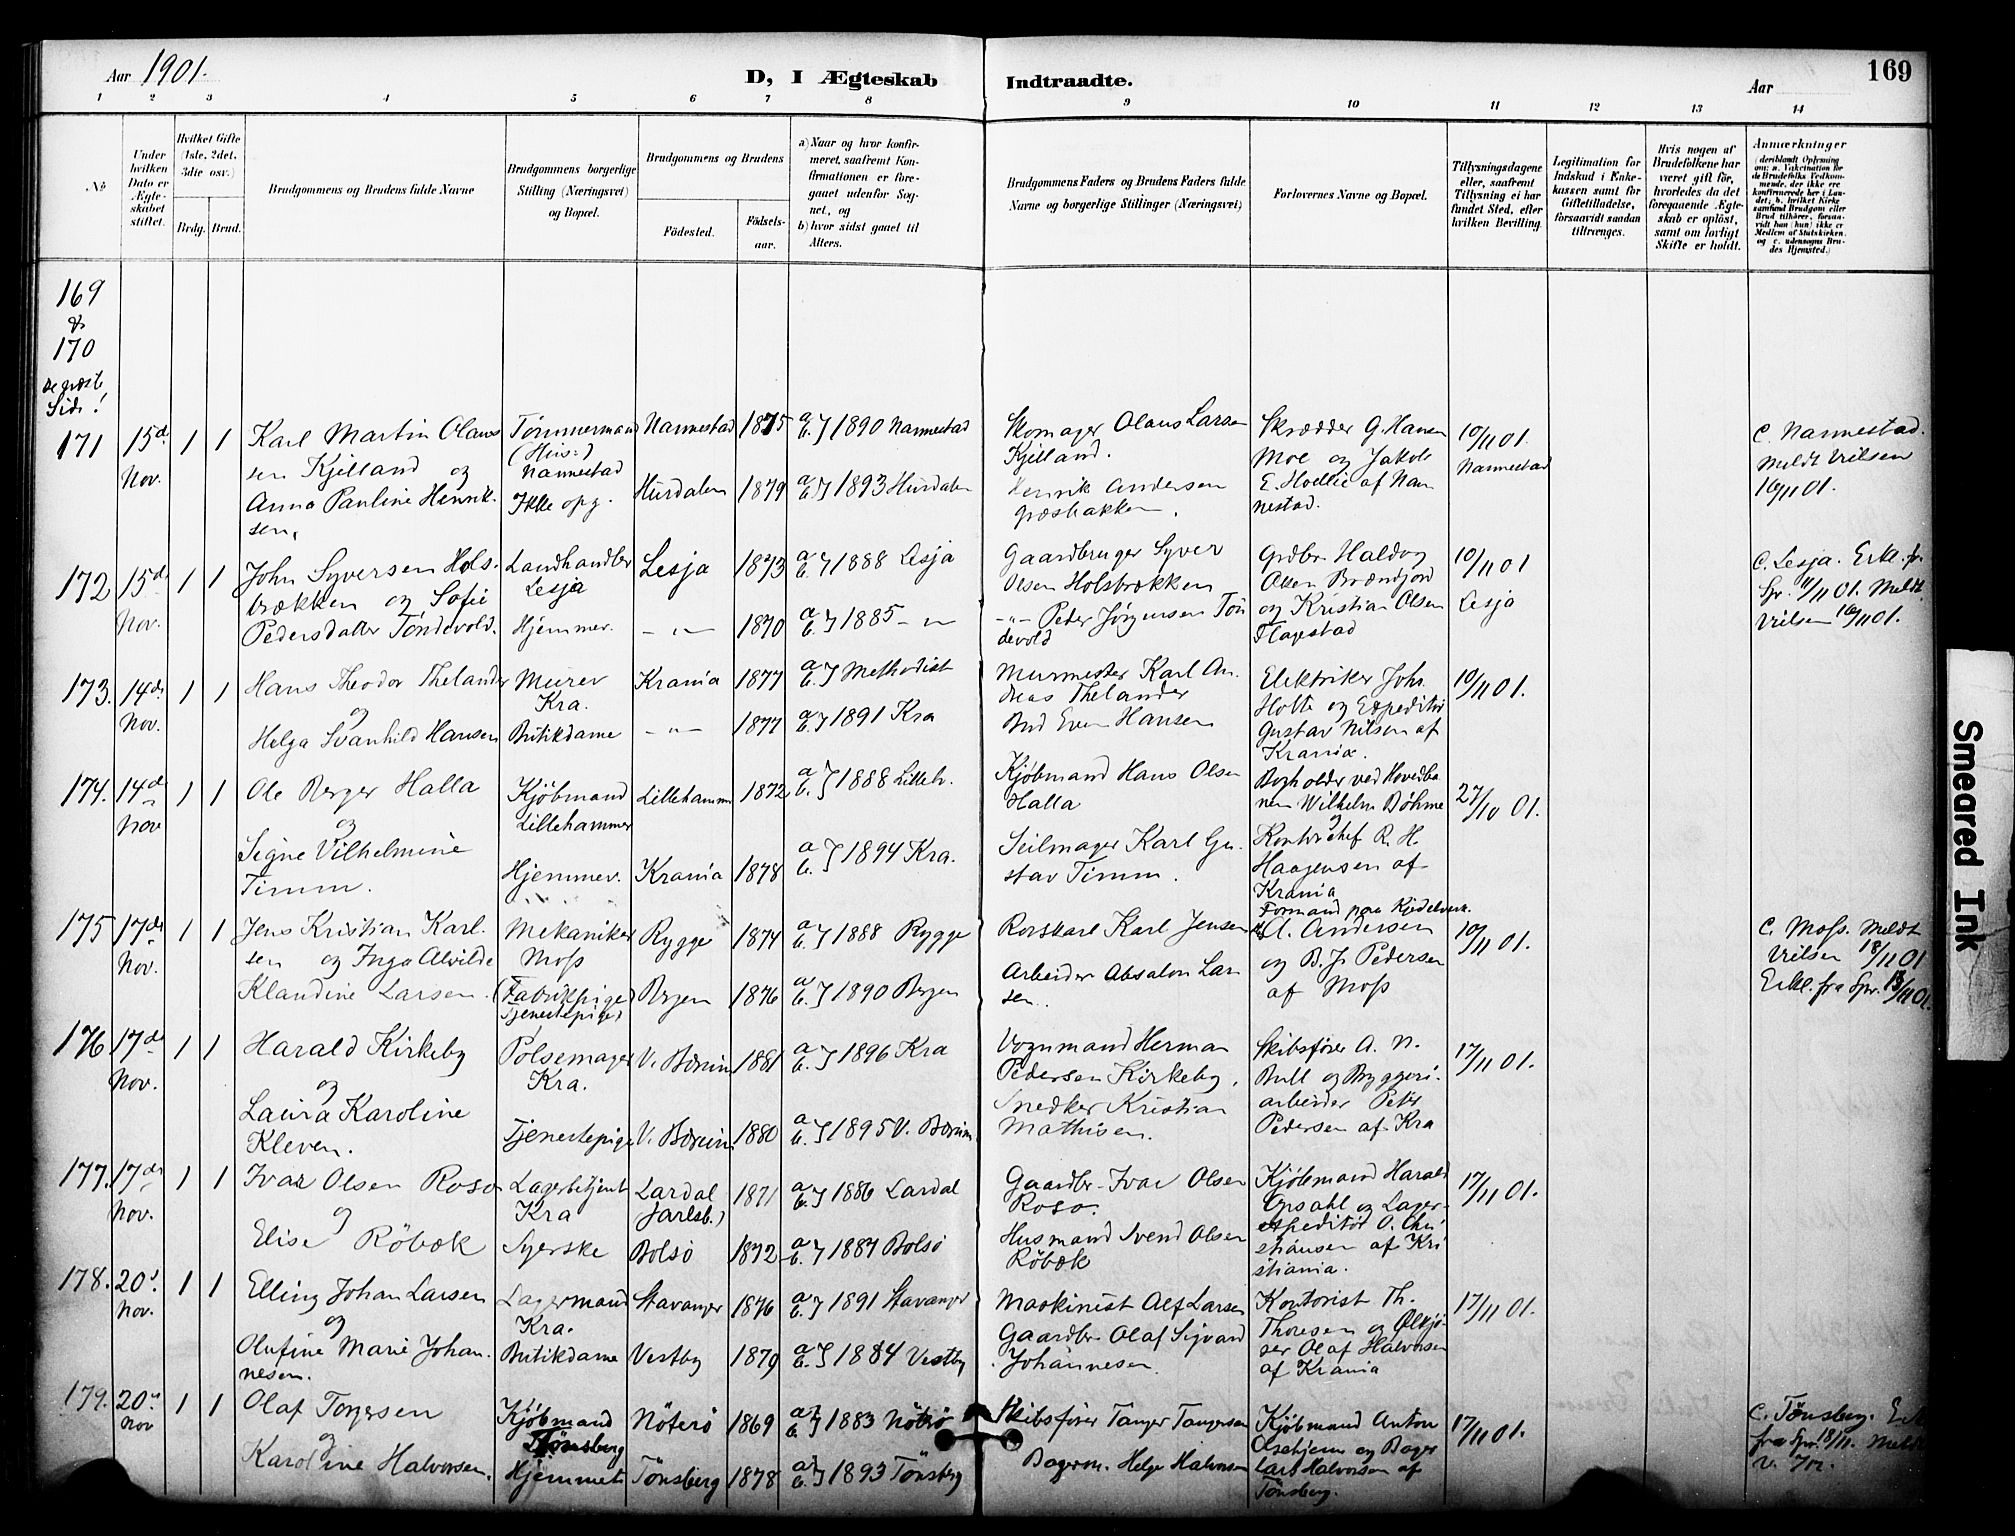 Aar 1901.
D, I Ægteskab Indtraadte.
Aar
169
1 2 3 4 5 6 7 8 9 10 11 12 13 14
No
Under hvilken Dato er Ægteskabet stiftet.
Hvilket Gifte (1ste, 2det, 3die osv.)
Brdg. Brud.
Brudgommens og Brudens fulde Navne
Brudgommens borgerlige Stilling (Næringsvei) og Bopæl.
Brudgommens og Brudens
Fødested. Fødselsaar.
a) Naar og hvor konfirmeret, saafremt Konfirmationen er foregaaet udenfor Sognet, og
b) hvor sidst gaaet til Alters.
Brudgommens Faders og Brudens Faders fulde Navne og borgerlige Stillinger (Næringsvei)
Forlovernes Navne og Bopæl.
Tillysningsdagene eller, saafremt Tillysning ei har fundet Sted, efter hvilken Bevilling.
Legitimation for Indskud i Enkekassen samt for Giftetilladelse, forsaavidt saadan tiltrænges.
Hvis nogen af Brudefolkene har været gift før, hvorledes da det foregaaende Ægteskab er opløst, samt om lovligt Skifte er holdt.
Anmærkninger
(deriblandt Oplysning om: a. Vakcination for de Brudefolks Vedkommende, der ikke ere konfirmerede her i Landet, b. hvilket Kirkesamfund Brudgom eller Brud tilhører, forsaavidt han (hun) ikke er Medlem af Statskirken, og c. udensogns Brudes Hjemsted.)
169
&
170
se næste
Side!
171 15de Nov. 1 1
Karl Martin Olaus
sen Kjelland og
Anna Pauline Henrik-
sen.
Tømmermand
Nannestad
Ikke opg.
Nannestad 1875 a b } 1890 Nannestad
Hurdalen 1879 a b } 1893 Hurdalen
Skomager Olaus Larsen
Kjelland.
Henrik Andersen
Græsbakken.
Skrædder G. Hansen
Moe og Jakob
E. Hoellie af Nan
nestad.
10/11 01.
Nannestad
C. Nannestad.
Meldt Vielsen
16/11 01.
172 15de Nov. 1 1
John Syversen Hols-
brækken og Sofie
Pedersdatter Tøndevold.
Landhandler
Lesja
Hjemmev.
Lesja 1873 a b } 1888 Lesja
— " — 1870 a b } 1885 — " —
Gaardbruger Syver
Olsen Holsbrækken
— " — Peder Jørgensen Tøn
devold
Grdbr. Haldog
Olsen Brændjord
og Kristian Olsen
Flagestad
10/11 01
Lesja
C. Lesja. Erkl. fr
Spr. 11/11 01. Meldt
Vielsen 16/11 01.
173. 14de Nov. 1 1
Hans Theodor Thelander
og
Helga Svanhild Hansen
Murer
Kra.
Butikdame
Krania 1877 a b } Methodist
— " — 1877 a b } 1891 Kra
Murmester Karl An
dreas Thelander
Bud Even Hansen
Elektriker Johs.
Holte og Expeditør
Gustav Nilsen af
Krania.
10/11 01.
174. 14de Nov 1 1
Ole Berger Halla
og
Signe Vilhelmine
Timm.
Kjøbmand
Lillehammer
Hjemmev.
Lillehammer 1872 a b } 1888 Lilleh.
Krania 1878 a b } 1894 Kra.
Kjøbmand Hans Olsen
Halla
Seilmager Karl Gu
stav Timm.
Bogholder ved Hovedba
nen Wilhelm Böhme
og
Kontorchef R. H.
Haagensen af
Krania
27/10 01.
175 17de Nov. 1 1
Jens Kristian Karl-
sen og Inga Alvilde
Klaudine Larsen.
Mekaniker
Moss
(Fabrikpige)
Tjenestepige)
Rygge 1874 a b } 1888 Rygge
Bergen 1876 a b } 1890 Bergen
Rorskarl Karl Jensen
Arbeider Absalon Lar
sen.
Formand paa Kjedelverk.
A. Andersen
og B. J. Pedersen
af Moss
10/11 01.
C. Moss. Meldt
Vielsen 18/11 01
Erkl. fra Spr. 13/11 01.
176 17de Nov. 1 1
Harald Kirkeby
og
Laura Karoline
Kleven.
Pølsemager
Kra.
Tjenestepige
V. Bærum 1881 a b } 1896 Kra
V. Bærum 1880 a b } 1895 V. Bærum
Vognmand Herman
Pedersen Kirkeby.
Snedker Kristian
Mathisen.
Skibsfører A. N.
Bull og Bryggeri-
arbeider Peter
Pedersen af Kra
17/11 01.
177. 17de Nov. 1 1
Ivar Olsen Roso
og
Elise Röbæk
Lagerbetjent
Kra
Syerske
Lardal
(Jarlsb.) 1871 a b } 1886 Lardal
Bolsö 1872 a b } 1887 Bolsö
Gaardbr. Ivar Olsen
Roso.
Husmand Svend Olsen
Röbæk
Kjöbmand Harald
Opsahl og Lager-
expeditör O. Chri
stiansen af Kri
stiania.
17/11 01.
178. 20de Nov. 1 1
Elling Johan Larsen
og
Olufine Marie Johan-
nesen.
Lagermand
Kra.
Butikdame
Stavanger 1876 a b } 1891 Stavanger
Vestby 1879 a b } 1884 Vestby
Maskinist Alf Larsen
Gaardbr. Olaf Sigvard
Johannesen
Kontorist Th.
Thoresen og Ölkjö-
rer Olaf Halvorsen
af Krania
17/11 01.
179. 20de Nov 1 1
Olaf Torgersen
og
Karoline Halvorsen.
Kjöbmand
Tönsberg
Hjemmet
Nöterö 1869 a b } 1883 Nöterö
Tönsberg 1878 a b } 1893 Tönsberg
Skibsfører Tanger Tangersen
Bagerm. Helge Halvorsen
Kjöbmand Anton
Olsen og Bager
Lars Halvorsen af
Tönsberg.
17/11 01.
C. Tönsberg.
fra Spr. 18/11. Meldt
Smeared Ink